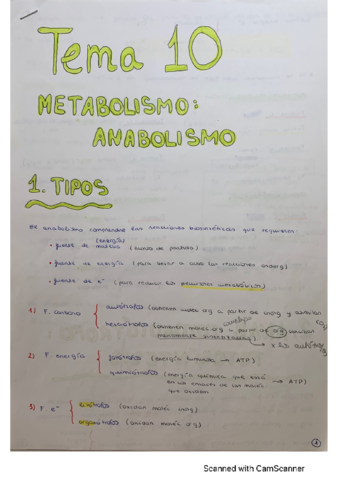 Tema 10
METABOLISMO:
ANABOLISMO
1. TIPOS
El anabolismo comprende las reacciones biosintéticas que requieren:
(energía)
· fuente de materia (tomar de partida).
· fuente de energía (para llevar a cabo las reacciones enderg)
· fuente de e⁻ (para reducir los precursores metabólicos)
1) F. carbono
autótrofos (obtienen matéc org a partir de inorg y
heterótrofos (obtienen matéc org a partir de org
x los autótrofos
2) F. energía
fotótrofos (energía luminosa → ATP)
quimiótrofos (energía química que está
en los enlaces de las moléc → ATP)
que oxidan
3) F e⁻
litótrofos (oxidan moléc inorg)
organótrofos (oxidan moléc org)
1
Scanned with CamScanner